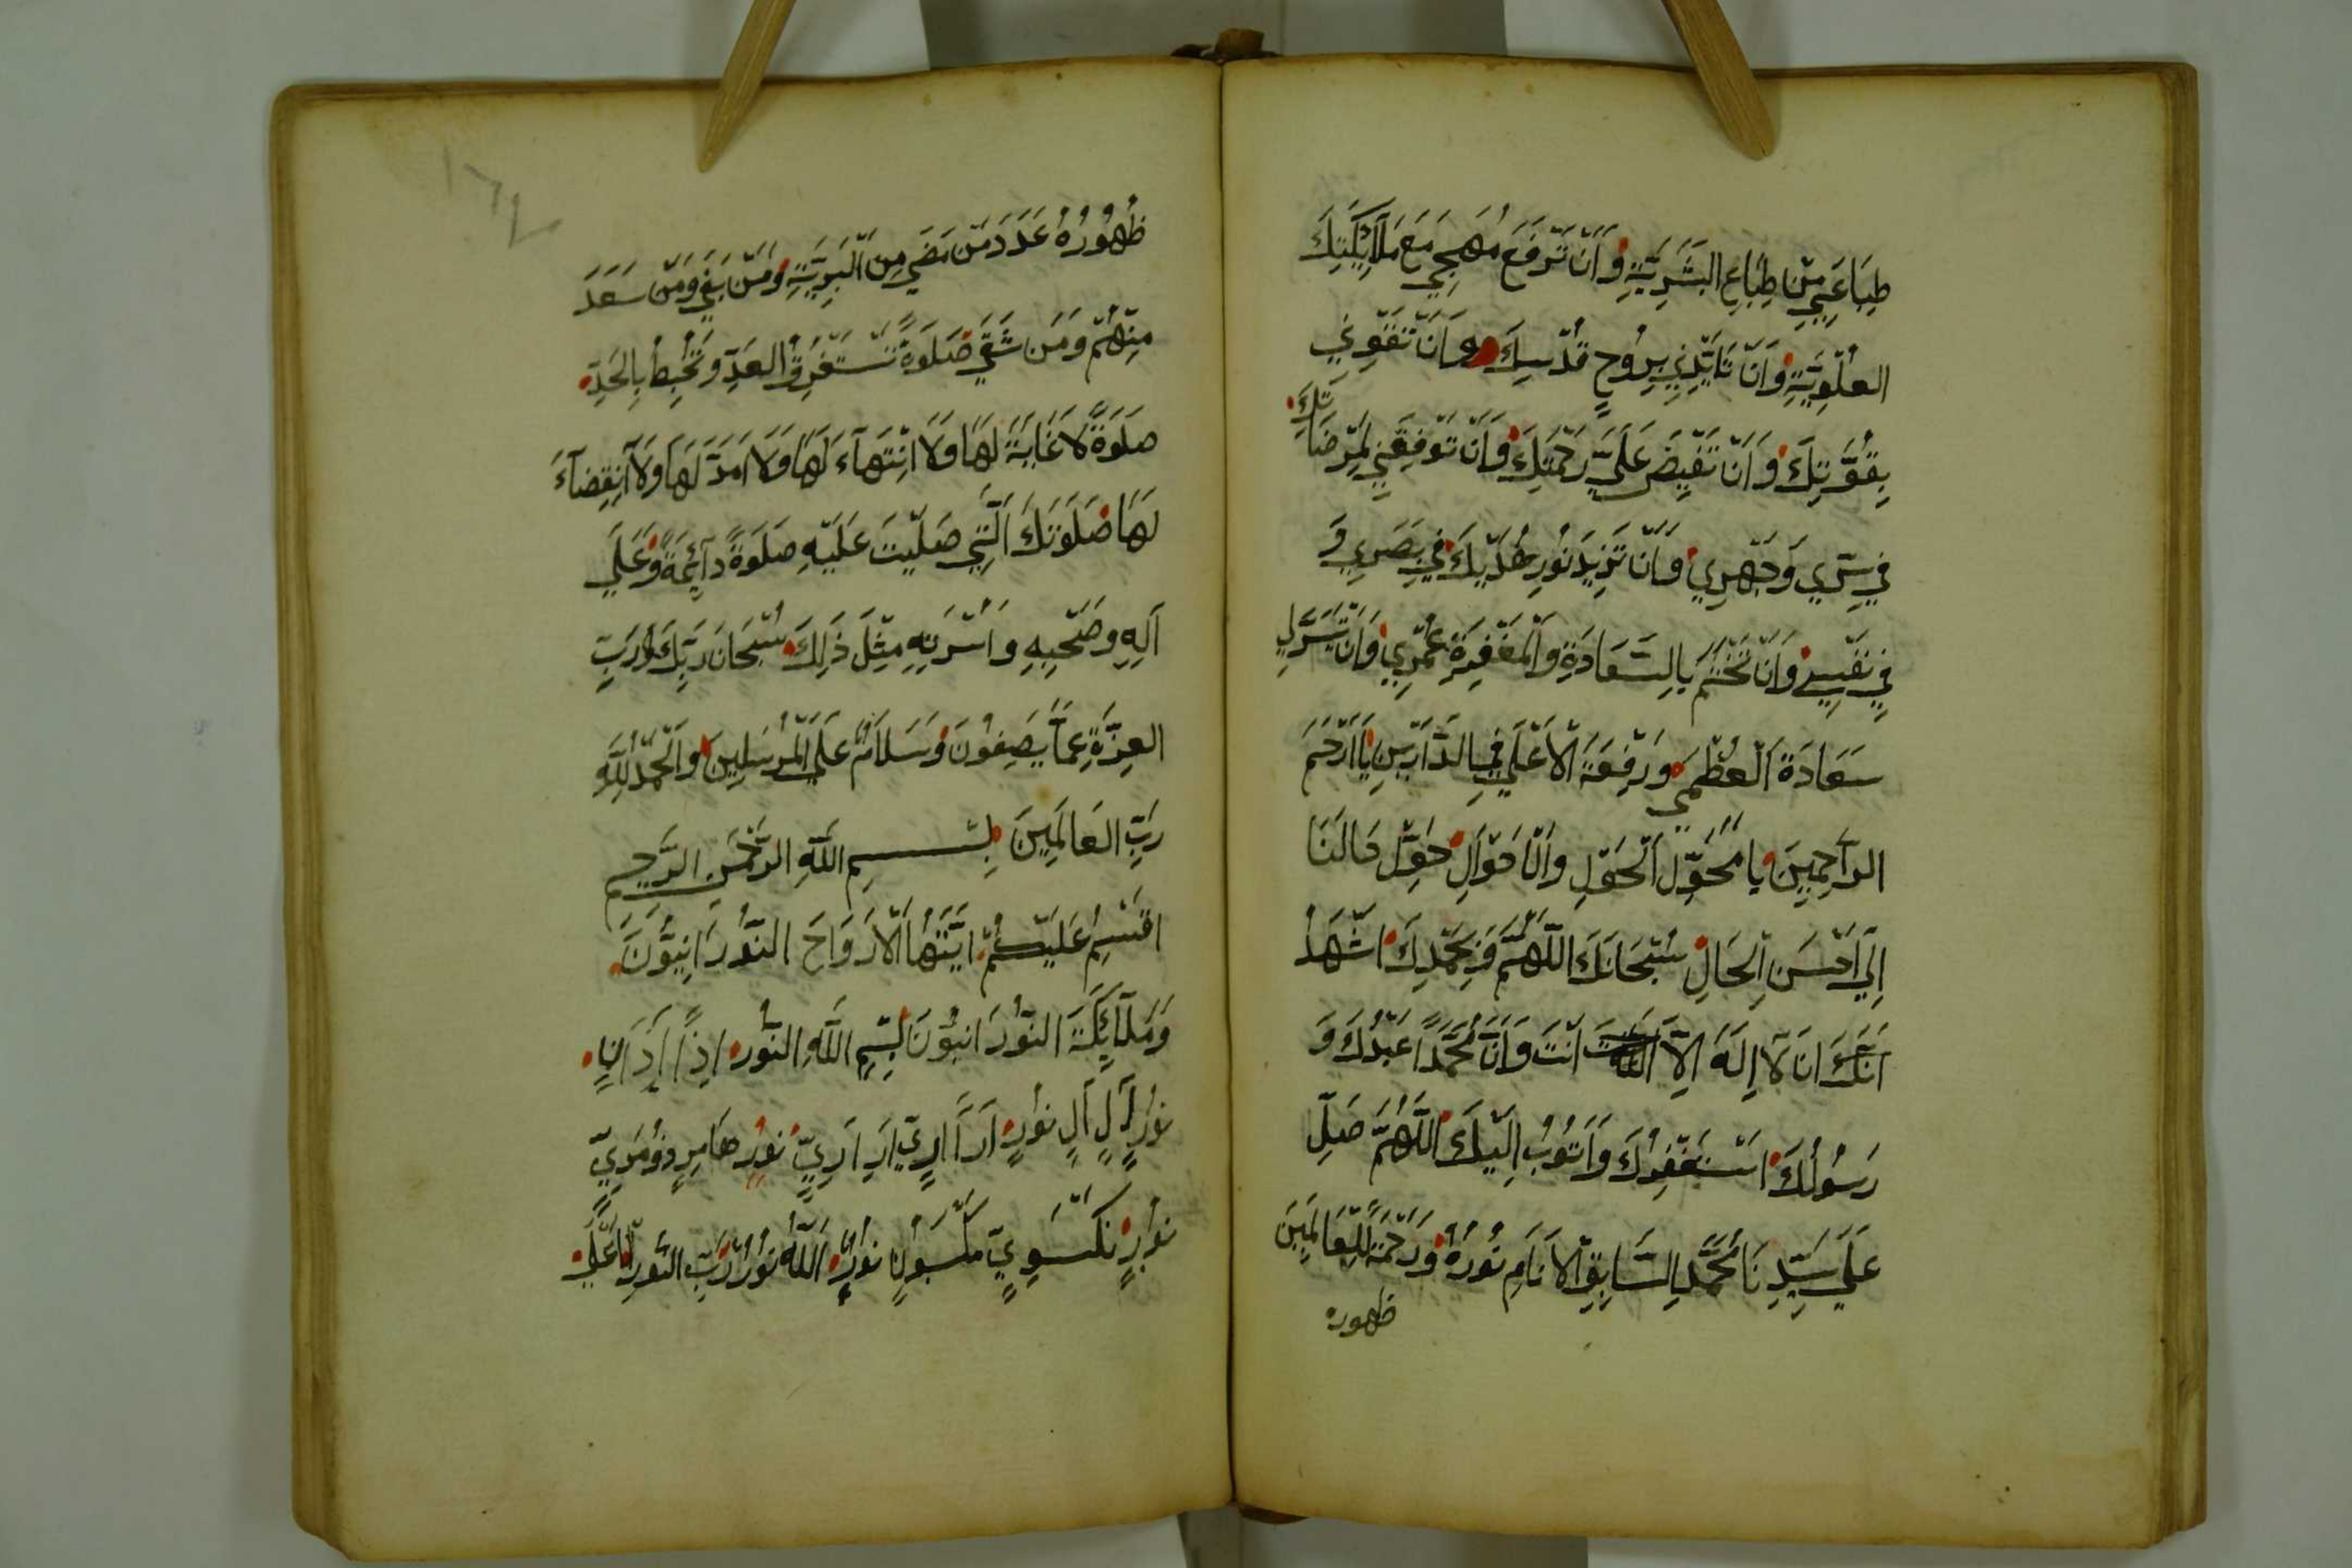 طِبَاعَنِي مِنْ طِبَاعِ البَشَرِيَّةِ وَاَنْ تَرْفَعَ مُهَجِي مَعَ مَلَآئِكَتِكَ
العُلْوِيَّةِ وَاَنْ تَايِّدْنِي بِرُوحِ قُدْسِكَ وَاَنْ تَقَوِّنِي
بِقُوَّتِكَ وَاَنْ تَفِيْضَ عَلَيَّ رَحْمَتِكَ وَاَنْ تَوْفِقَنِي لِمَرْضَاتِكَ
فِي سِرِّي وَجَهْرِي وَاَنْ تَزِيدَ نُورِ هُدَيْكَ فِي بَصَرِي وَ
فِي نَفْسِي وَاَنْ تَخْتِمَ بِالسَّعَادَةِ وَالْمَغْفِرَةِ عُمْرِي وَاَنْ تَيَسَّرَلِي
سَعَادَةَ الْعُظْمَي وَرِفْعَةَ الْاَعْلَي فِي الدَّارَيْنِ يَا اَرْحَمَ
الرَّاحِمِينَ يَا مُحَوِّلَ الْحَوْلِ وَالْاَحْوَالِ حَوِّلْ حَالَنَا
اِلَي اَحْسَنِ الْحَالِ سُبْحَانَكَ اللَّهُمَّ وَبِحَمْدِكَ اَشْهَدُ
اَنَّكَ اَنَ لَآ اِلَهَ اِلَّا اَنْتَ وَاَنَّ مُحَمَّدًا عَبْدُكَ وَ
رَسُولُكَ اَسْتَغْفِرُكَ وَاَتُوبُ اِلَيْكَ اَللَّهُمَّ صَلِّ
عَلَي سَيِّدِنَا مُحَمَّدِ السَّابِقِ الْاَنَامِ نُورُهُ وَرَحْمَةً لِلْعَالَمِينَ
ظهوره
١٦٧
ظُهُورُهُ عَدَدَ مَنْ مَضَي مِنَ الْبَرِيَّةِ وَمَنْ بَقِي وَمَنْ سَعَدَ
مِنْهُمْ وَمَنْ شَقَي صَلَوةً تَسْتَغْرِقُ العَدِّ وَتُحِيطُ بِالْحَدِّ
صَلَوةً لَا غَايَةَ لَهَا وَلَا اِنْتِهَآءَ لَهَا وَلَا اَمَدَ لَهَا وَلَا اَنْقِضَآءَ
لَهَا صَلَوتَكَ الَّتِي صَلَّيْتَ عَلَيْهِ صَلَوةً دَآئِمَةً وَعَلَي
آلِهِ وَصَحْبِهِ وَاَسْرَتِهِ مِثْلَ ذَلِكَ سُبْحَانَ رَبِّكَ رَبِّ
العِزَّةِ عَمَّا يَصِفُونَ وَسَلَامٌ عَلَي الْمُرْسَلِينَ وَالْحَمْدُ لِلَّهِ
رَبِّ العَالَمِينَ بِسْمِ اللَّهِ الرَّحْمَنِ الرَّحِيمِ
اَقْسِمُ عَلَيْكُمْ اَيَّتُهَا الْاَرْوَاحَ النُّورَانِيُّونَ
وَمَلَآئِكَةَ النُّورَانِيُّونَ بِسْمِ اللَّهِ النُّورِ
نُورٍ آلٍ آلٍ نُورٍ
نُورٍ اَللَّهُ نُورٌ رَبِّ النُّورِ الْاَعْلَي